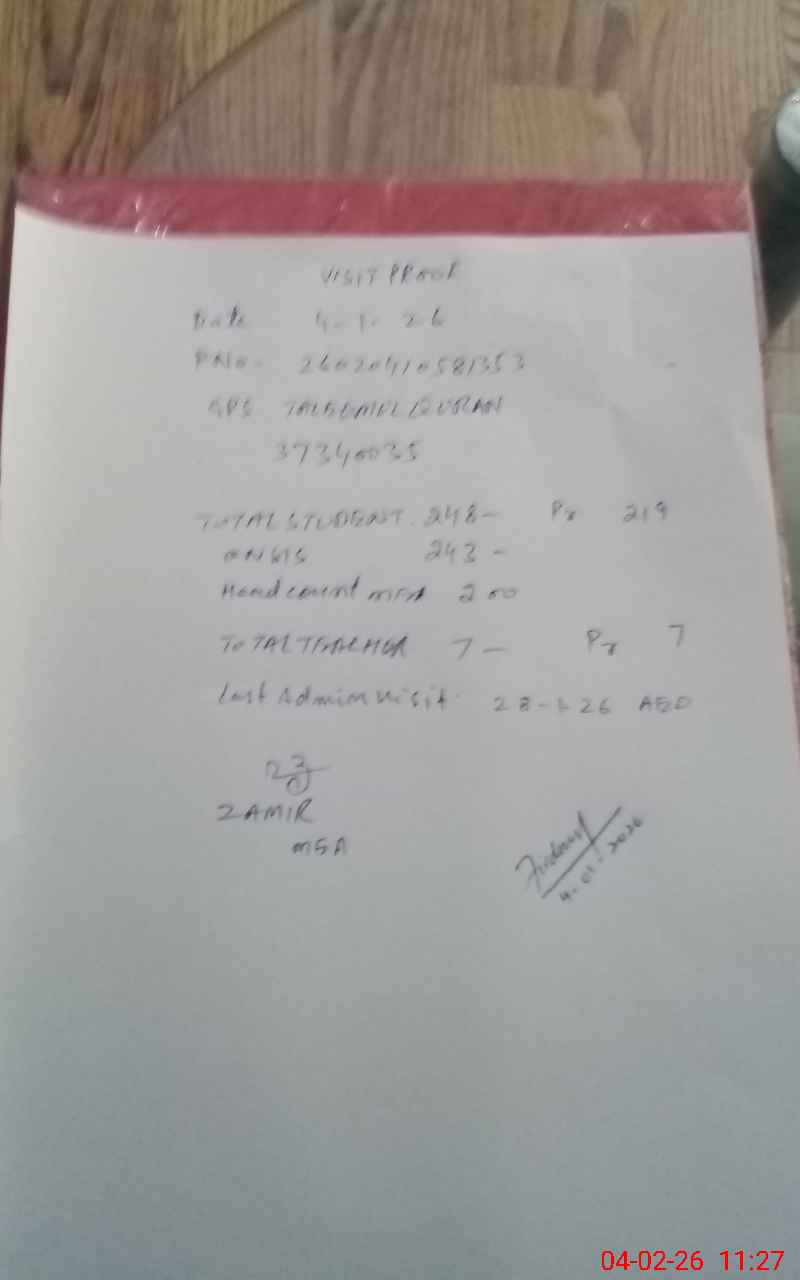 VISIT PROOF
Date 4-1-26
PNo- 26020410581353
GPS TALEEMUL QURAN
37340035
TOTAL STUDENT. 248- Pr 219
ON SIS 243-
Head count MEA 200
TOTAL TEACHER 7- Pr 7
Last Admin visit 28-1-26 AEO
ZAMIR
MEA
4-01-2026
04-02-26 11:27